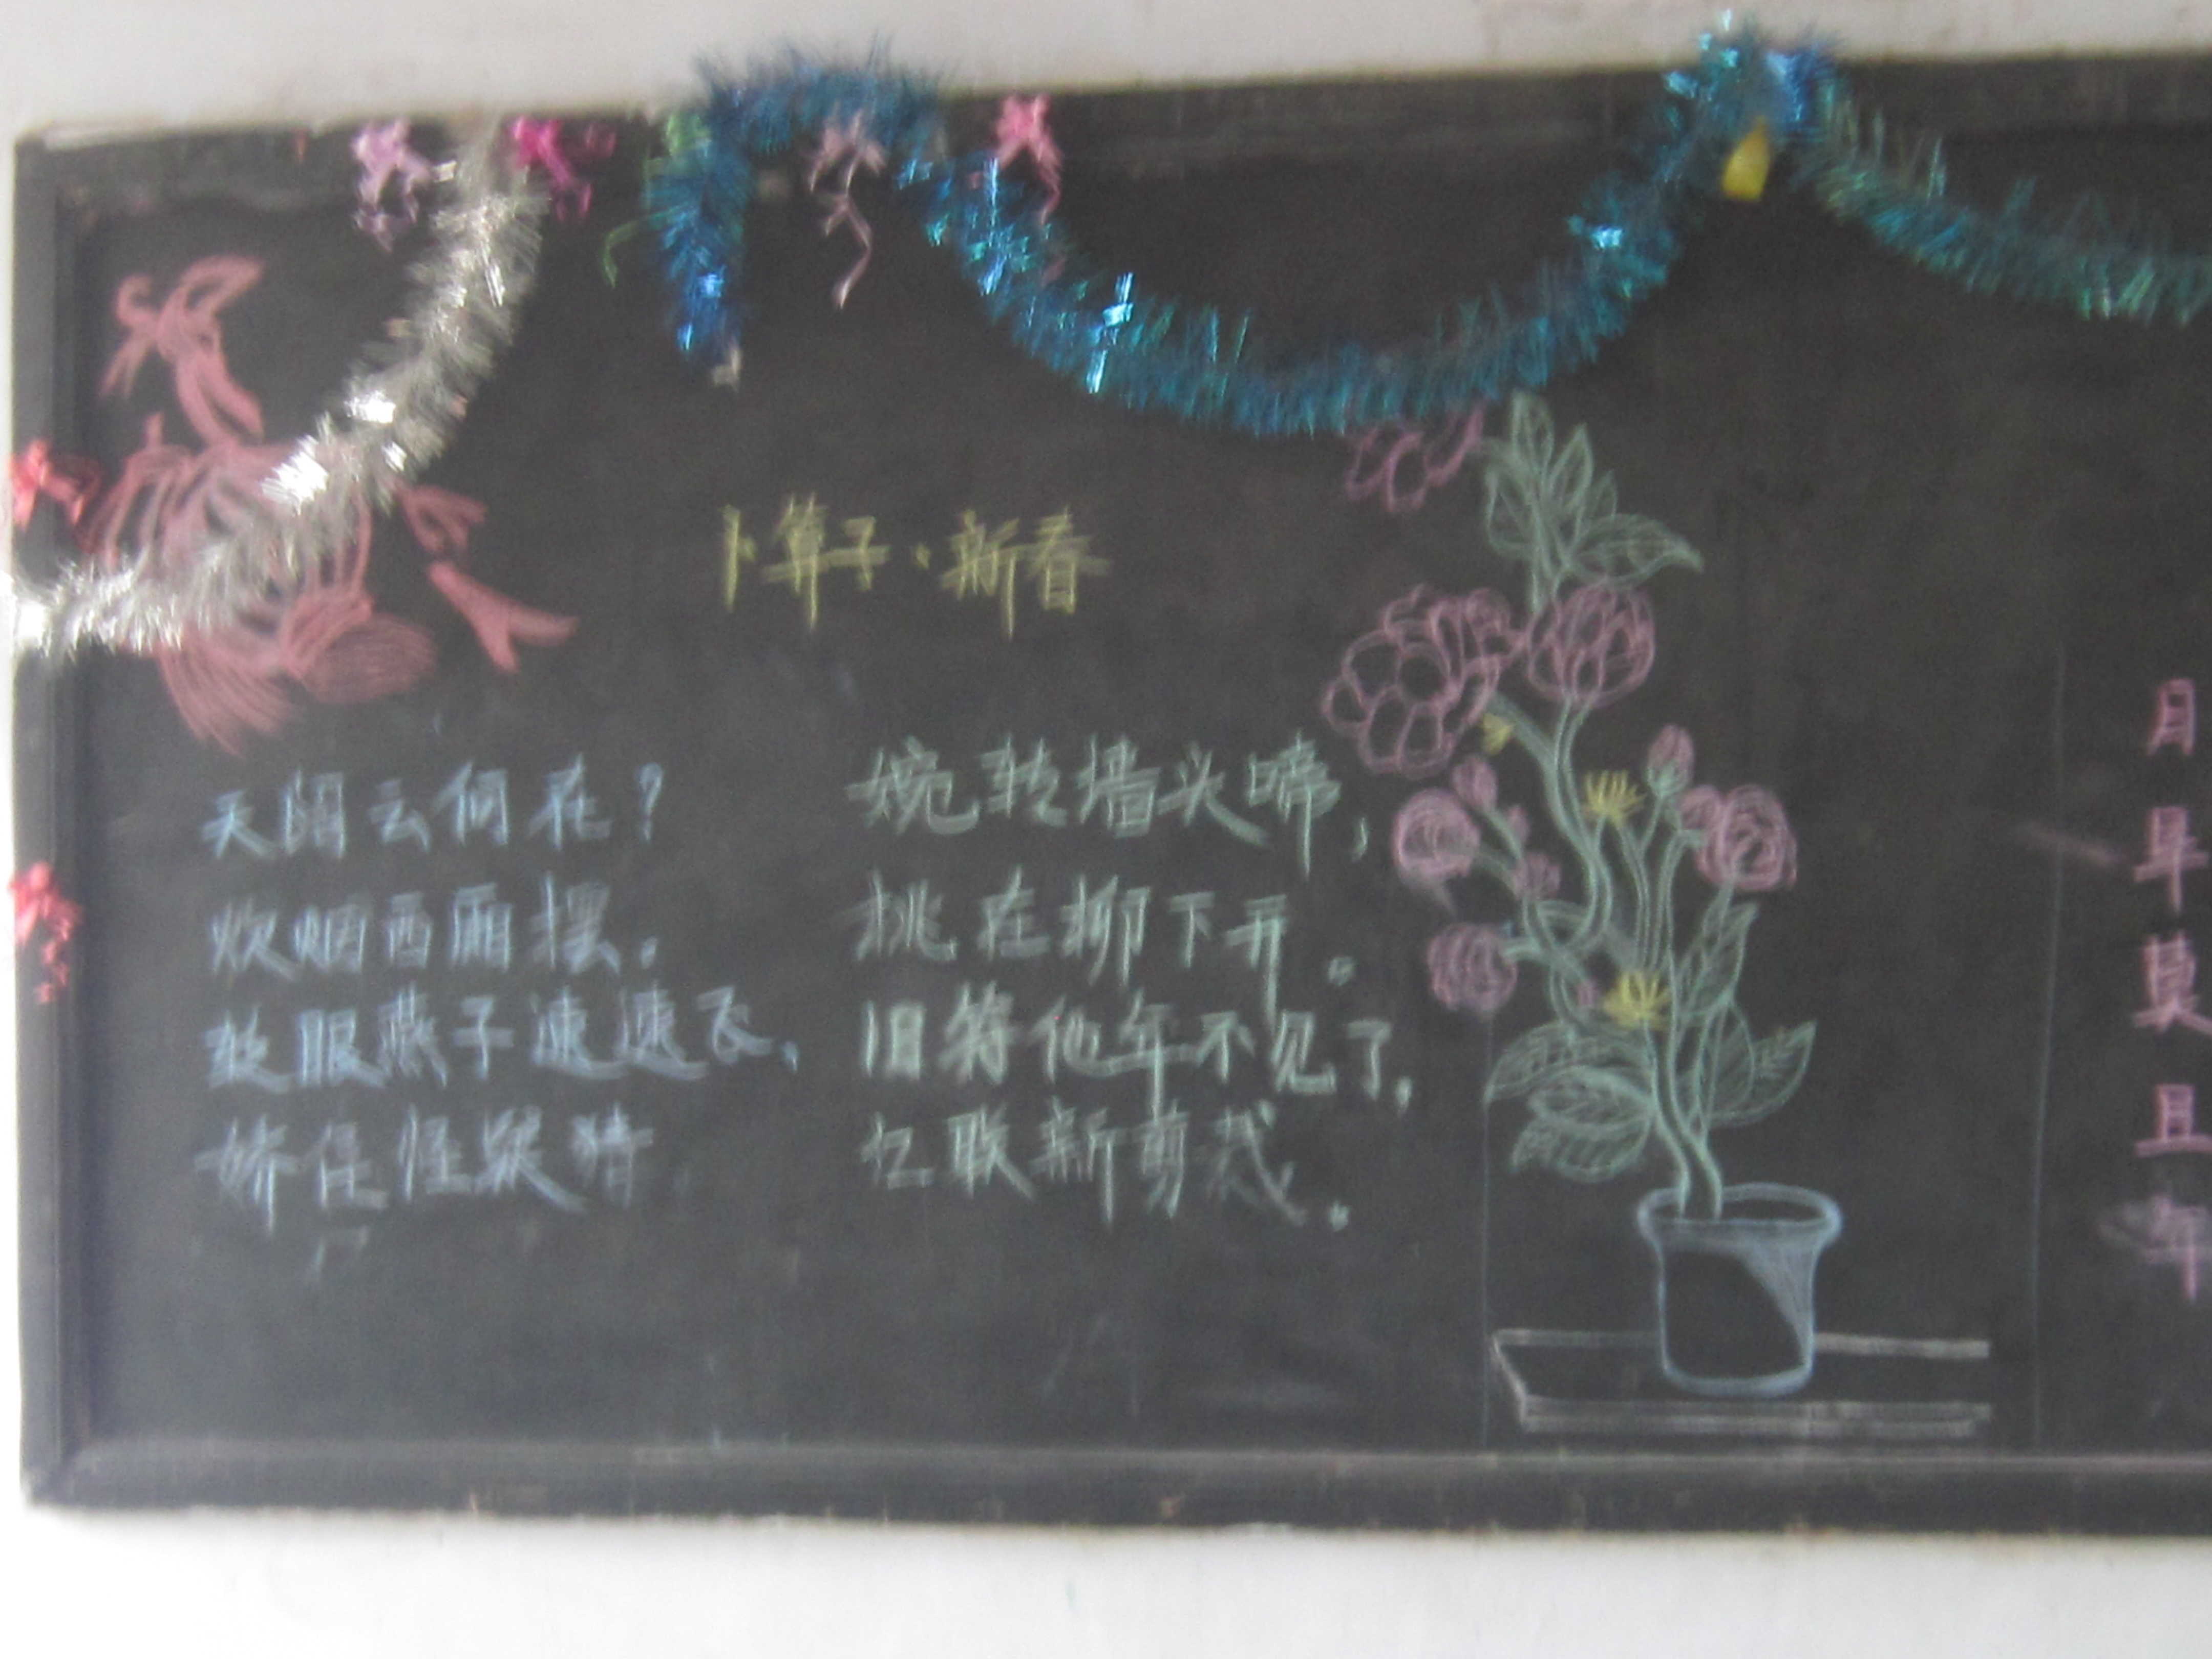 卜算子·新春
天阴云何在?
炊烟西厢摆.
放眼燕子速速飞、
娇住怪疑猜.
婉转墙头啼,
桃在柳下开.
旧符他年不见了,
忆联新剪裁.
月
年
旦
年